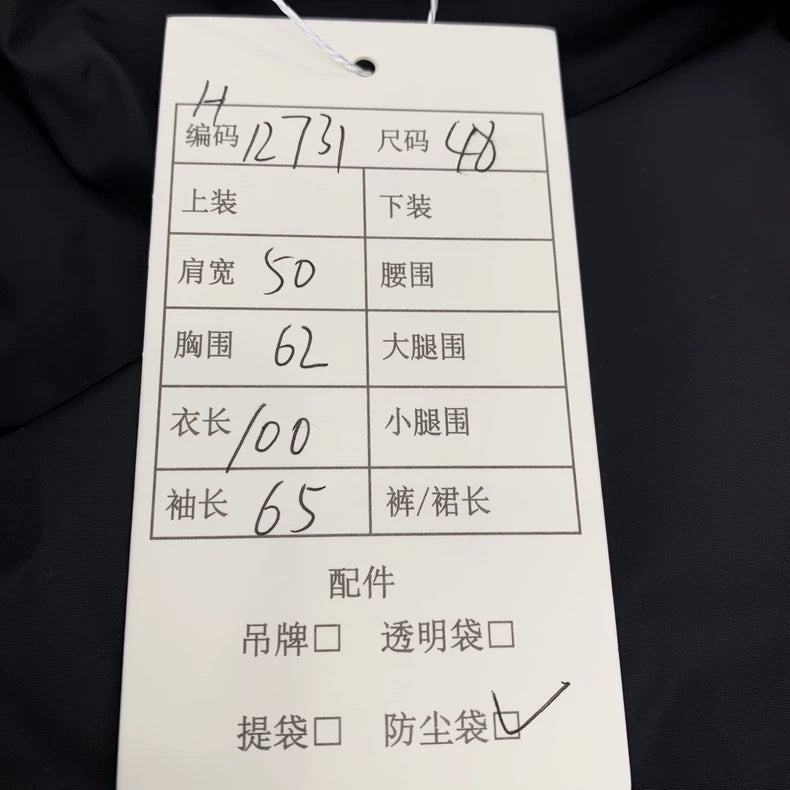 H
编码 12731 尺码 48
上装 下装
肩宽 50 腰围
胸围 62 大腿围
衣长 100 小腿围
袖长 65 裤/裙长
配件
吊牌□ 透明袋□
提袋□ 防尘袋☑